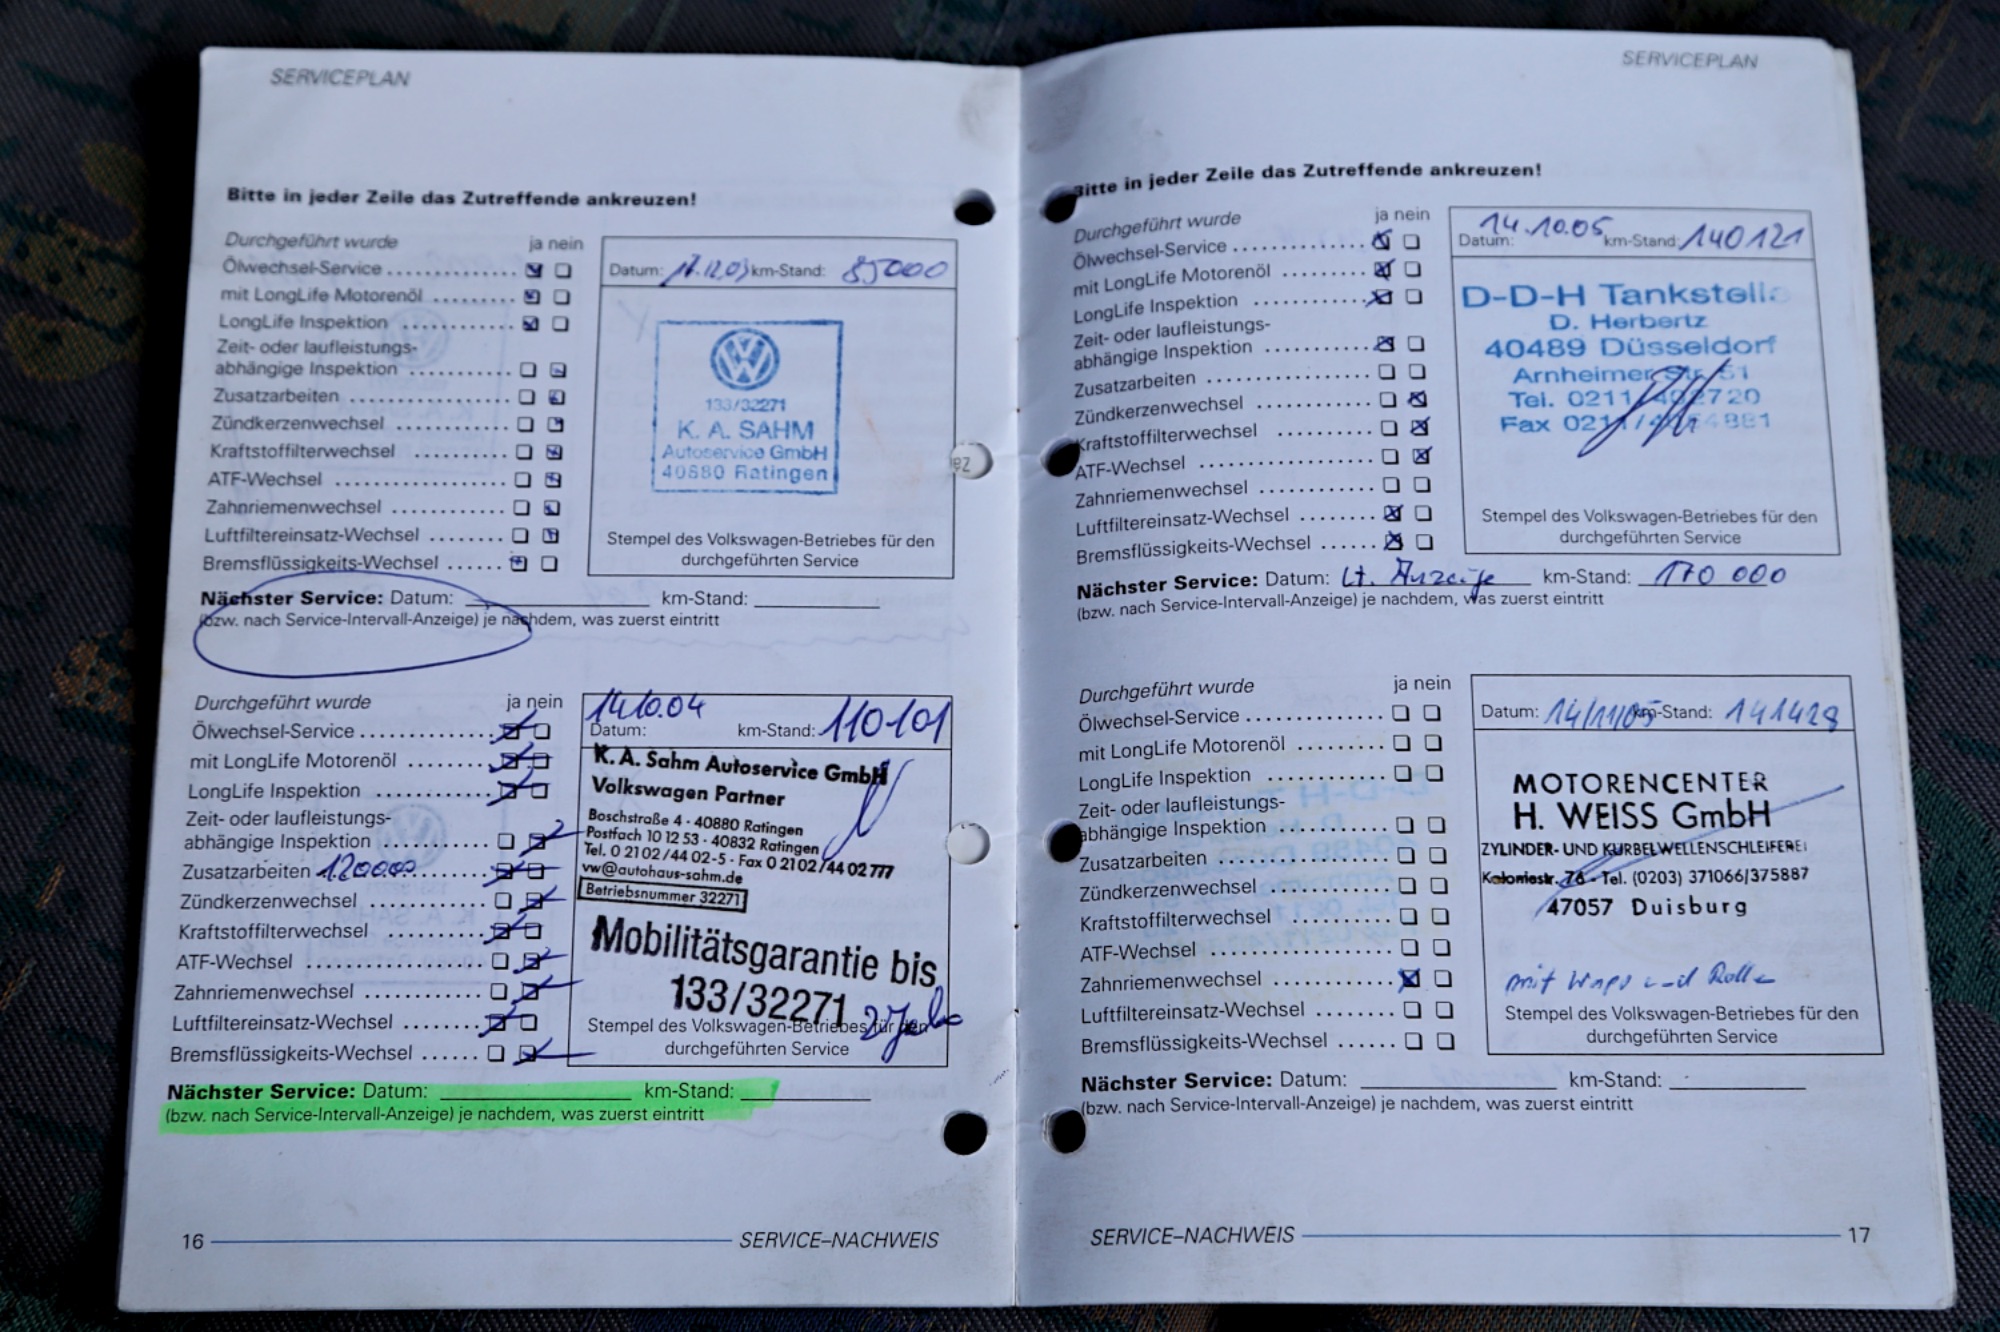 SERVICEPLAN
Bitte in jeder Zeile das Zutreffende ankreuzen!
Durchgeführt wurde ja nein
Ölwechsel-Service
mit LongLife Motorenöl
LongLife Inspektion
Zeit- oder laufleistungs-
abhängige Inspektion
Zusatzarbeiten
Zündkerzenwechsel
Kraftstoffilterwechsel
ATF-Wechsel
Zahnriemenwechsel
Luftfiltereinsatz-Wechsel
Bremsflüssigkeits-Wechsel
Datum: 17.12.03 km-Stand: 85000
133/32271
K. A. SAHM
Autoservice GmbH
40880 Ratingen
Stempel des Volkswagen-Betriebes für den
durchgeführten Service
Nächster Service: Datum: km-Stand:
(bzw. nach Service-Intervall-Anzeige) je nachdem, was zuerst eintritt
Durchgeführt wurde ja nein
Ölwechsel-Service
mit LongLife Motorenöl
LongLife Inspektion
Zeit- oder laufleistungs-
abhängige Inspektion
Zusatzarbeiten 120000
Zündkerzenwechsel
Kraftstoffilterwechsel
ATF-Wechsel
Zahnriemenwechsel
Luftfiltereinsatz-Wechsel
Bremsflüssigkeits-Wechsel
14.10.04 110101
Datum: km-Stand:
K. A. Sahm Autoservice GmbH
Volkswagen Partner
Boschstraße 4 · 40880 Ratingen
Postfach 10 12 53 · 40832 Ratingen
Tel. 0 21 02 / 44 02-5 · Fax 0 21 02 / 44 02 777
vw@autohaus-sahm.de
Betriebsnummer 32271
Mobilitätsgarantie bis
133/32271
Stempel des Volkswagen-Betriebes für den
durchgeführten Service
Nächster Service: Datum: km-Stand:
(bzw. nach Service-Intervall-Anzeige) je nachdem, was zuerst eintritt
16 SERVICE–NACHWEIS
SERVICEPLAN
Bitte in jeder Zeile das Zutreffende ankreuzen!
Durchgeführt wurde ja nein
Ölwechsel-Service
mit LongLife Motorenöl
LongLife Inspektion
Zeit- oder laufleistungs-
abhängige Inspektion
Zusatzarbeiten
Zündkerzenwechsel
Kraftstoffilterwechsel
ATF-Wechsel
Zahnriemenwechsel
Luftfiltereinsatz-Wechsel
Bremsflüssigkeits-Wechsel
14.10.05
Datum: km-Stand: 140121
D-D-H Tankstelle
D. Herbertz
40489 Düsseldorf
Arnheimer Str. 51
Tel. 0211/402720
Fax 0211/
Stempel des Volkswagen-Betriebes für den
durchgeführten Service
Nächster Service: Datum: Lt. Anzeige km-Stand: 170 000
(bzw. nach Service-Intervall-Anzeige) je nachdem, was zuerst eintritt
Durchgeführt wurde ja nein
Ölwechsel-Service
mit LongLife Motorenöl
LongLife Inspektion
Zeit- oder laufleistungs-
abhängige Inspektion
Zusatzarbeiten
Zündkerzenwechsel
Kraftstoffilterwechsel
ATF-Wechsel
Zahnriemenwechsel
Luftfiltereinsatz-Wechsel
Bremsflüssigkeits-Wechsel
Datum: 14/11/05 km-Stand: 141428
MOTORENCENTER
H. WEISS GmbH
ZYLINDER- UND KURBELWELLENSCHLEIFEREI
Koloniestr. 78 - Tel. (0203) 371066/375887
47057 Duisburg
mit Wapu und Rolle
Stempel des Volkswagen-Betriebes für den
durchgeführten Service
Nächster Service: Datum: km-Stand:
(bzw. nach Service-Intervall-Anzeige) je nachdem, was zuerst eintritt
SERVICE–NACHWEIS 17